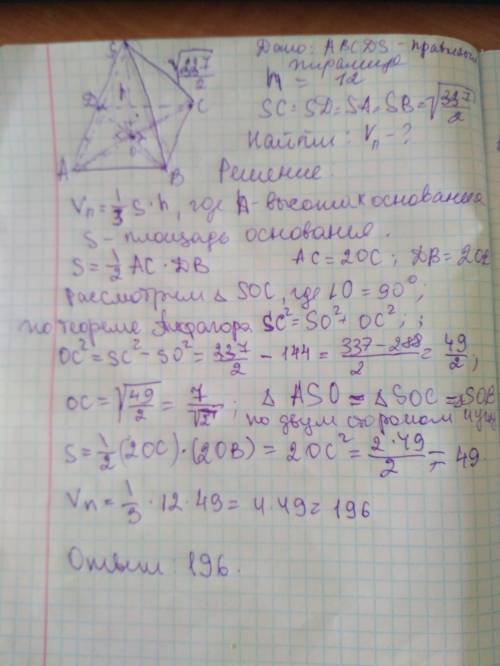 S
√337/2
D
h
C
O
A
B
Дано: ABCDS - правильная
пирамида
h = 12
SC=SD=SA=SB=√337/2
Найти: Vп - ?
Решение.
Vп = 1/3 S·h, где h - высота к основанию
S - площадь основания.
S = 1/2 AC·DB AC = 2OC; DB = 2OB
Рассмотрим △ SOC, где ∠O = 90°;
по теореме Пифагора SC² = SO² + OC²; ;
OC² = SC² - SO² = 337/2 - 144 = (337-288)/2 = 49/2;
OC = √49/2 = 7/√2; △ ASO = △SOC = △SOB
по двум сторонам и углу
S = 1/2 (2OC)·(2OB) = 2OC² = 2·49/2 = 49
Vп = 1/3 · 12 · 49 = 4·49 = 196
Ответ 196.